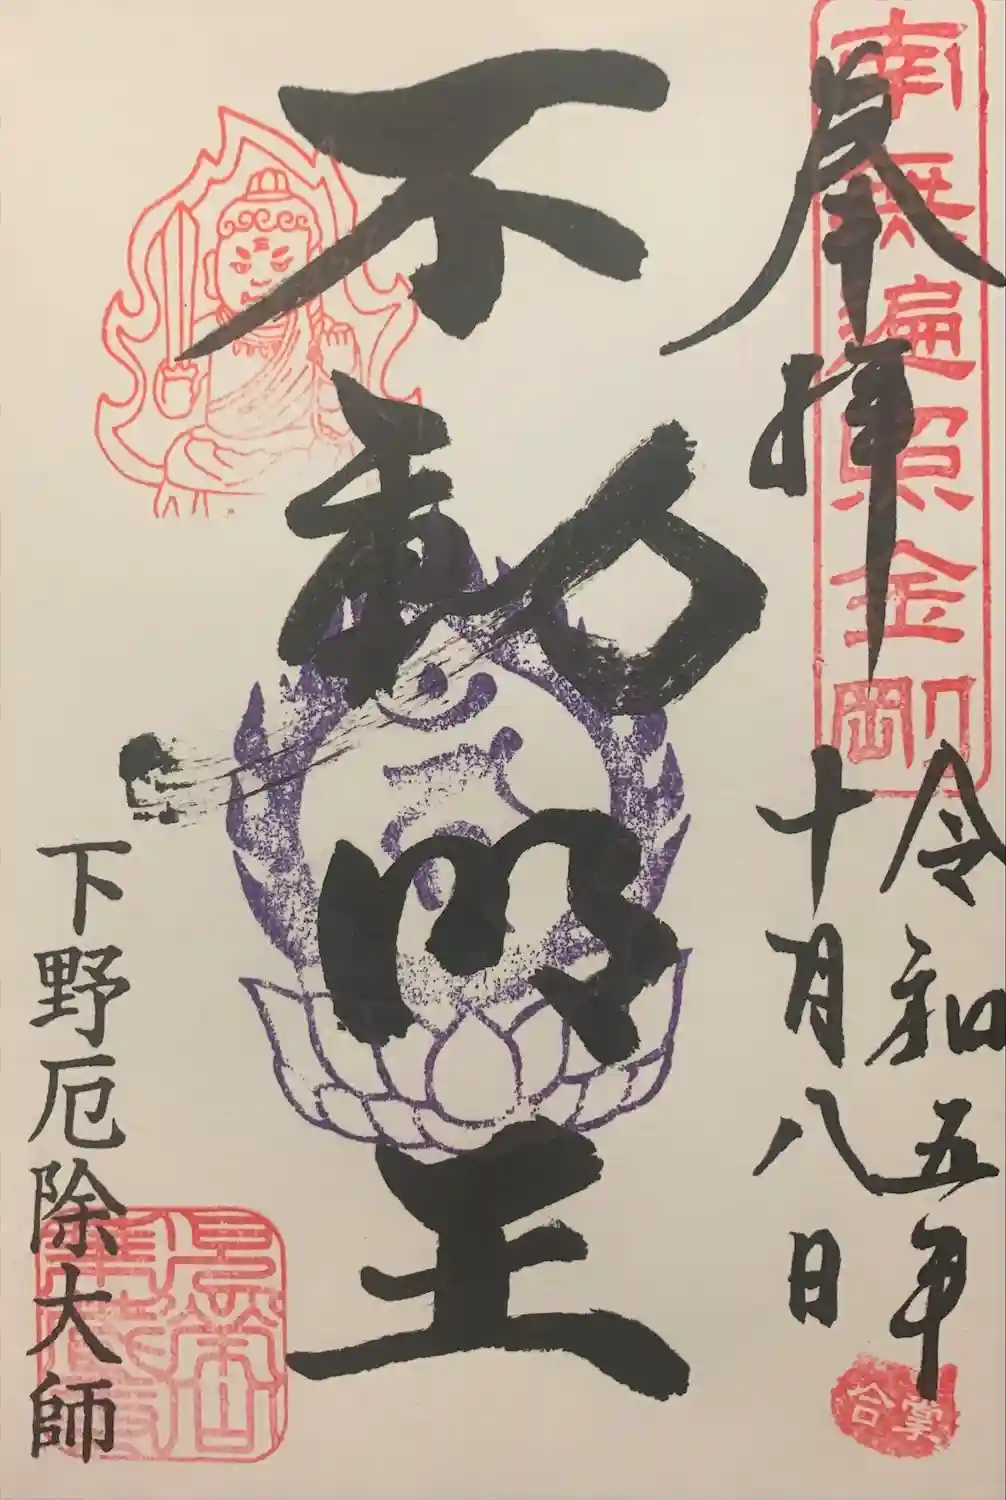 南無遍照金剛
奉拝
令和五年
十月八日
合掌
不動明王
下野厄除大師